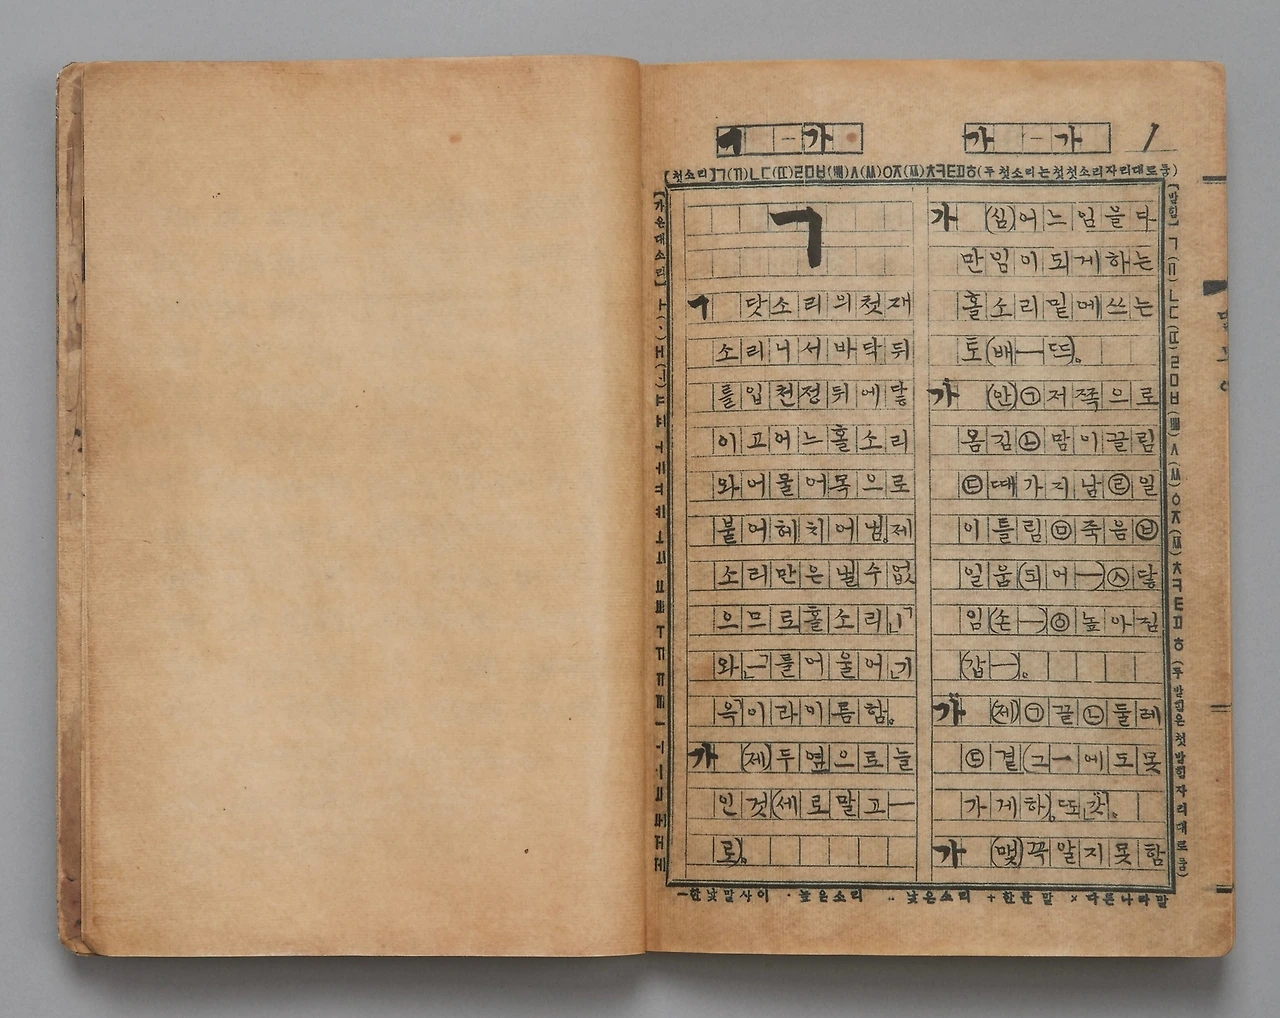 ㄱ – 가
가 – 가
1
[첫소리] ㄱ(ㄲ)ㄴㄷ(ㄸ)ㄹㅁㅂ(ㅃ)ㅅ(ㅆ)ㅇㅈ(ㅉ)ㅊㅋㅌㅍㅎ(두 첫소리는 첫 첫소리 자리대로 둠)
[가온대소리]
ㄱ
ㄱ 닷소리의첫재
소리니서바닥뒤
를입천정뒤에닿
이고어느홀소리
와어물어목으로
불어헤치어냄。제
소리만은낼수없
으므로홀소리「ㅣ」
와「ㅡ」를어울어「기
윽」이라이름함。
가 (제)두옆으로늘
인것(세로말고—
로)。
가 (심)어느임을다
만임이되게하는
홀소리밑메쓰는
토(배—뜨)。
가 (안)㉠저쪽으로
몸김㉡맘이끌림
㉢때가지남㉣일
이틀림㉤죽음㉥
일움(되어—)㉦닿
임(손—)㉧높아짐
(갑—)。
가 (제)㉠끝㉡둘레
㉢곁(그—에도못
가게하)。또「갓」。
가 (맺)꼭알지못함
[받힘] ㄱ(ㄲ)ㄴㄷ(ㄸ)ㄹㅁㅂ(ㅃ)ㅅ(ㅆ)ㅇㅈ(ㅉ)ㅊㅋㅌㅍㅎ(두 받힘은 첫 받힘 자리대로 둠)
—한낱말사이 ·높은소리 ‥낮은소리 +한문말 ×다른나라말